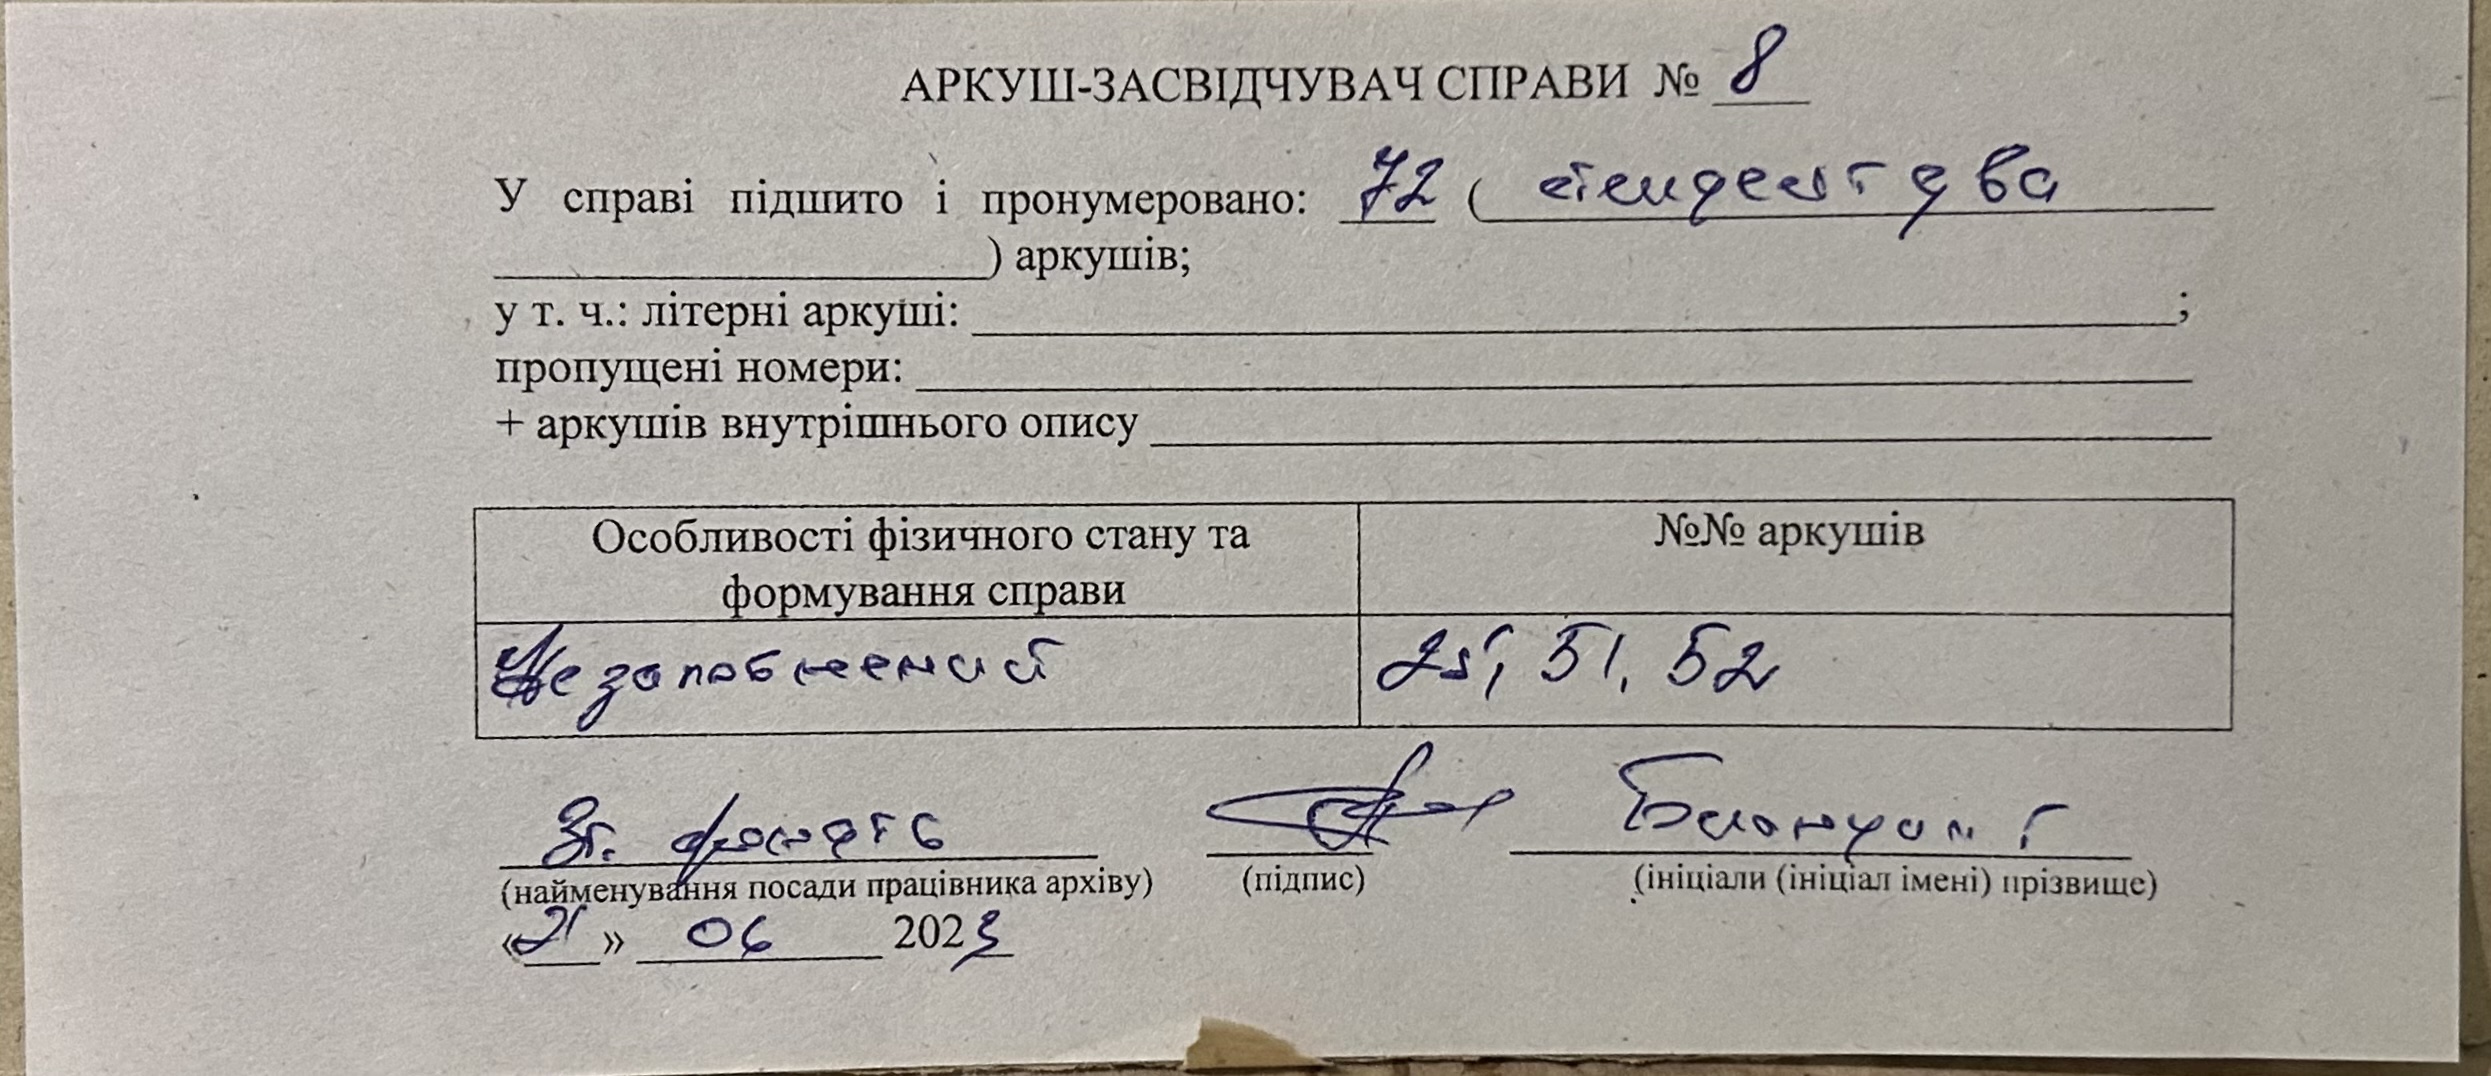 АРКУШ-ЗАСВІДЧУВАЧ СПРАВИ № 8
У справі підшито і пронумеровано: 72 ( сімдесят два
) аркушів;
у т. ч.: літерні аркуші: ;
пропущені номери:
+ аркушів внутрішнього опису
Особливості фізичного стану та
формування справи
№№ аркушів
Незаповнений
25, 51, 52
(найменування посади працівника архіву) (підпис) (ініціали (ініціал імені) прізвище)
«21» 06 2023